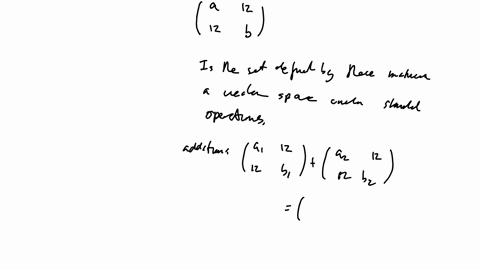 ( a 12
12 b )
Is the set defined by these matrices
a vector space under standard
operations,
additions ( a1 12
12 b1 ) + ( a2 12
12 b2 )
= (